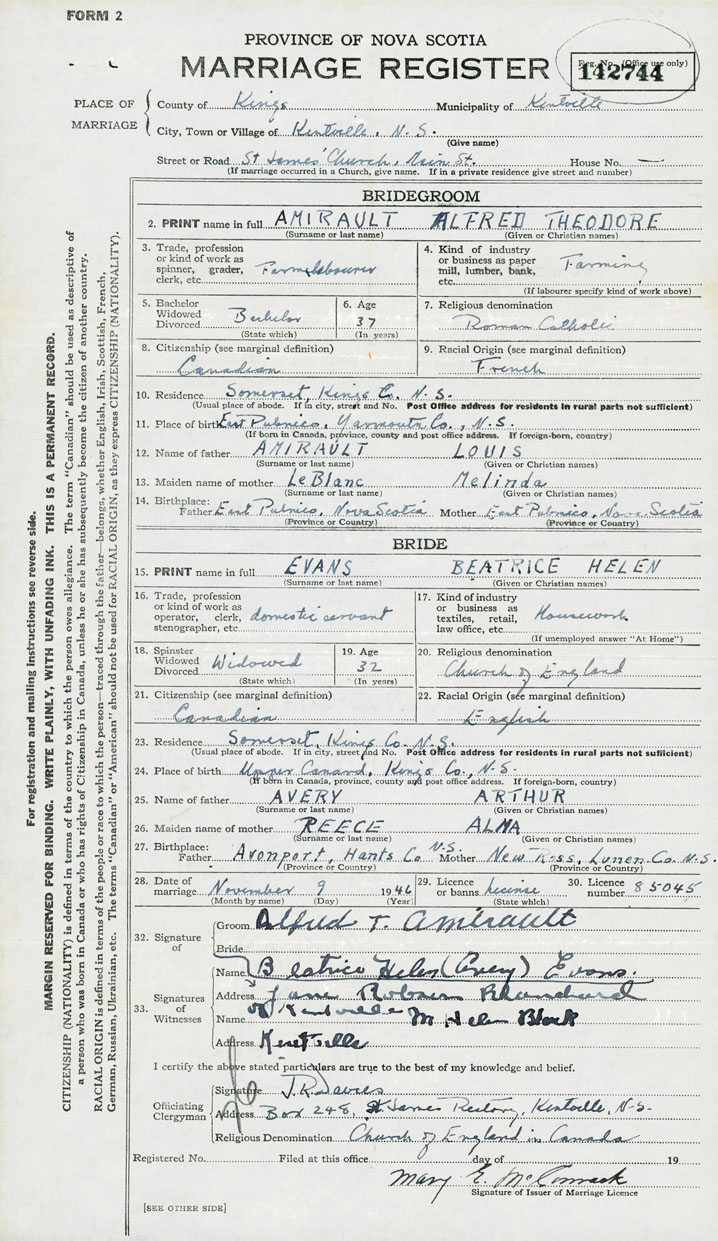 FORM 2
PROVINCE OF NOVA SCOTIA
MARRIAGE REGISTER
Reg. No. (Office use only)
142744
PLACE OF MARRIAGE
County of Kings Municipality of Kentville
City, Town or Village of Kentville, N. S.
(Give name)
Street or Road St James' Church, Main St. House No. —
(If marriage occurred in a Church, give name. If in a private residence give street and number)
BRIDEGROOM
2. PRINT name in full AMIRAULT ALFRED THEODORE
(Surname or last name) (Given or Christian names)
3. Trade, profession or kind of work as spinner, grader, clerk, etc. Farm labourer
4. Kind of industry or business as paper mill, lumber, bank, etc. Farming
(If labourer specify kind of work above)
5. Bachelor Widowed Divorced Bachelor
(State which)
6. Age 37
(In years)
7. Religious denomination
Roman Catholic
8. Citizenship (see marginal definition)
Canadian
9. Racial Origin (see marginal definition)
French
10. Residence Somerset, Kings Co. N. S.
(Usual place of abode. If in city, street and No. Post Office address for residents in rural parts not sufficient)
11. Place of birth East Pubnico, Yarmouth Co., N. S.
(If born in Canada, province, county and post office address. If foreign-born, country)
12. Name of father AMIRAULT LOUIS
(Surname or last name) (Given or Christian names)
13. Maiden name of mother LeBlanc Melinda
(Surname or last name) (Given or Christian names)
14. Birthplace: Father East Pubnico, Nova Scotia Mother East Pubnico, Nova Scotia
(Province or Country) (Province or Country)
BRIDE
15. PRINT name in full EVANS BEATRICE HELEN
(Surname or last name) (Given or Christian names)
16. Trade, profession or kind of work as operator, clerk, stenographer, etc. domestic servant
17. Kind of industry or business as textiles, retail, law office, etc. Housework
(If unemployed answer "At Home")
18. Spinster Widowed Divorced Widowed
(State which)
19. Age 32
(In years)
20. Religious denomination
Church of England
21. Citizenship (see marginal definition)
Canadian
22. Racial Origin (see marginal definition)
English
23. Residence Somerset, Kings Co. N. S.
(Usual place of abode. If in city, street and No. Post Office address for residents in rural parts not sufficient)
24. Place of birth Upper Canard, Kings Co., N. S.
(If born in Canada, province, county and post office address. If foreign-born, country)
25. Name of father AVERY ARTHUR
(Surname or last name) (Given or Christian names)
26. Maiden name of mother REECE ALMA
(Surname or last name) (Given or Christian names)
27. Birthplace: Father Avonport, Hants Co N.S. Mother New Ross, Lunen. Co. N.S.
(Province or Country) (Province or Country)
28. Date of marriage November 9 1946
(Month by name) (Day) (Year)
29. Licence or banns License
(State which)
30. Licence number 85045
32. Signature of
Groom Alfred T. Amirault
Bride
Name Beatrice Helen (Avery) Evans.
33. Signatures of Witnesses
Address Jane Robson
of Kentville
Name M. Helen Black
Address Kentville
I certify the above stated particulars are true to the best of my knowledge and belief.
Officiating Clergyman
Signature J. R. Davies
Address Box 248, St James Rectory, Kentville, N.S.
Religious Denomination Church of England in Canada
Registered No. Filed at this office day of 19
Mary E. McCormack
Signature of Issuer of Marriage Licence
[SEE OTHER SIDE]
For registration and mailing instructions see reverse side.
MARGIN RESERVED FOR BINDING. WRITE PLAINLY, WITH UNFADING INK. THIS IS A PERMANENT RECORD.
CITIZENSHIP (NATIONALITY) is defined in terms of the country to which the person owes allegiance. The term "Canadian" should be used as descriptive of
a person who was born in Canada or who has rights of Citizenship in Canada, unless he or she has subsequently become the citizen of another country.
RACIAL ORIGIN is defined in terms of the people or race to which the person—traced through the father—belongs, whether English, Irish, Scottish, French,
German, Russian, Ukrainian, etc. The terms "Canadian" or "American" should not be used for RACIAL ORIGIN, as they express CITIZENSHIP (NATIONALITY).